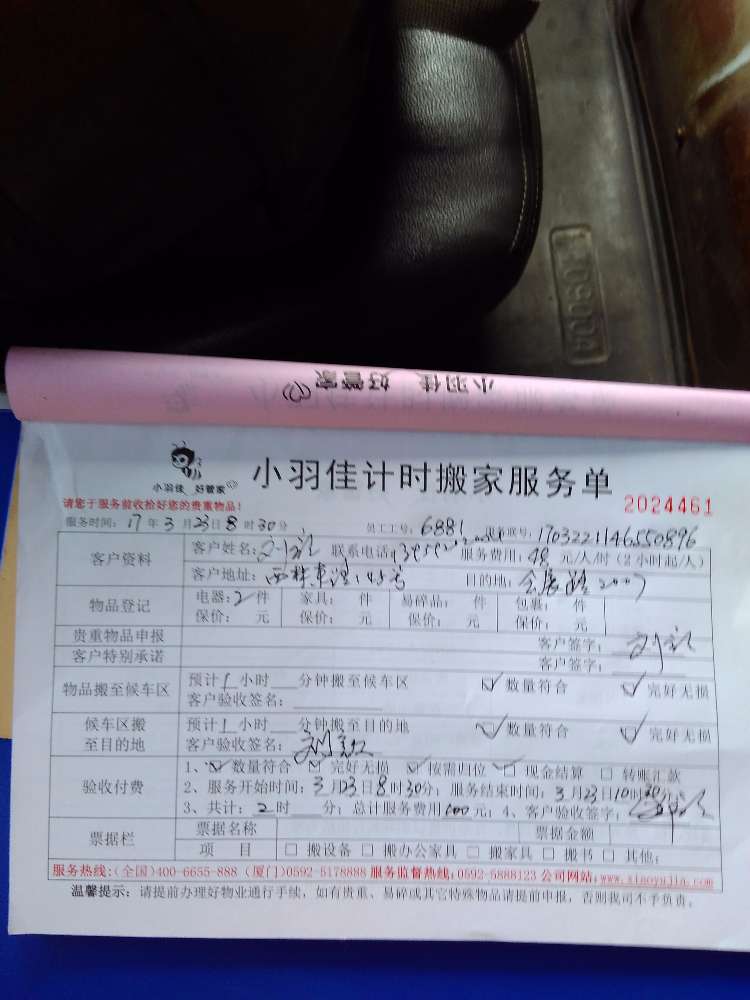 小羽佳 好管家
小羽佳 好管家
小羽佳计时搬家服务单
2024461
请您于服务前收拾好您的贵重物品!
服务时间: 17年3月23日8时30分 员工工号: 6881 1703221146550896
客户资料
客户姓名: 联系电话: 服务费用: 48 元/人/时(2小时起/人)
客户地址: 号 目的地: 会展 2007
物品登记
电器: 2件 家具: 件 易碎品: 件 包裹: 件
保价: 元 保价: 元 保价: 元 保价: 元
贵重物品申报 客户签字:
客户特别承诺 客户签字:
物品搬至候车区
预计1小时 分钟搬至候车区 ☑数量符合 ☑完好无损
客户验收签名:
候车区搬至目的地
预计1小时 分钟搬至目的地 ☑数量符合 ☑完好无损
客户验收签名:
验收付费
1、☑数量符合 ☑完好无损 ☑按需归位 □现金结算 □转账汇款
2、服务开始时间: 3月23日8时30分; 服务结束时间: 3月23日10时30分
3、共计: 2时 分; 总计服务费用 元; 4、客户验收签字:
票据栏
票据名称 票据金额
项 目 □搬设备 □搬办公家具 □搬家具 □搬书 □其他:
服务热线:(全国)400-6655-888 (厦门)0592-5178888 服务监督热线:0592-5888123 公司网站:www.xiaoyujia.com
温馨提示: 请提前办理好物业通行手续, 如有贵重、易碎或其它特殊物品请提前申报, 否则我司不予负责。